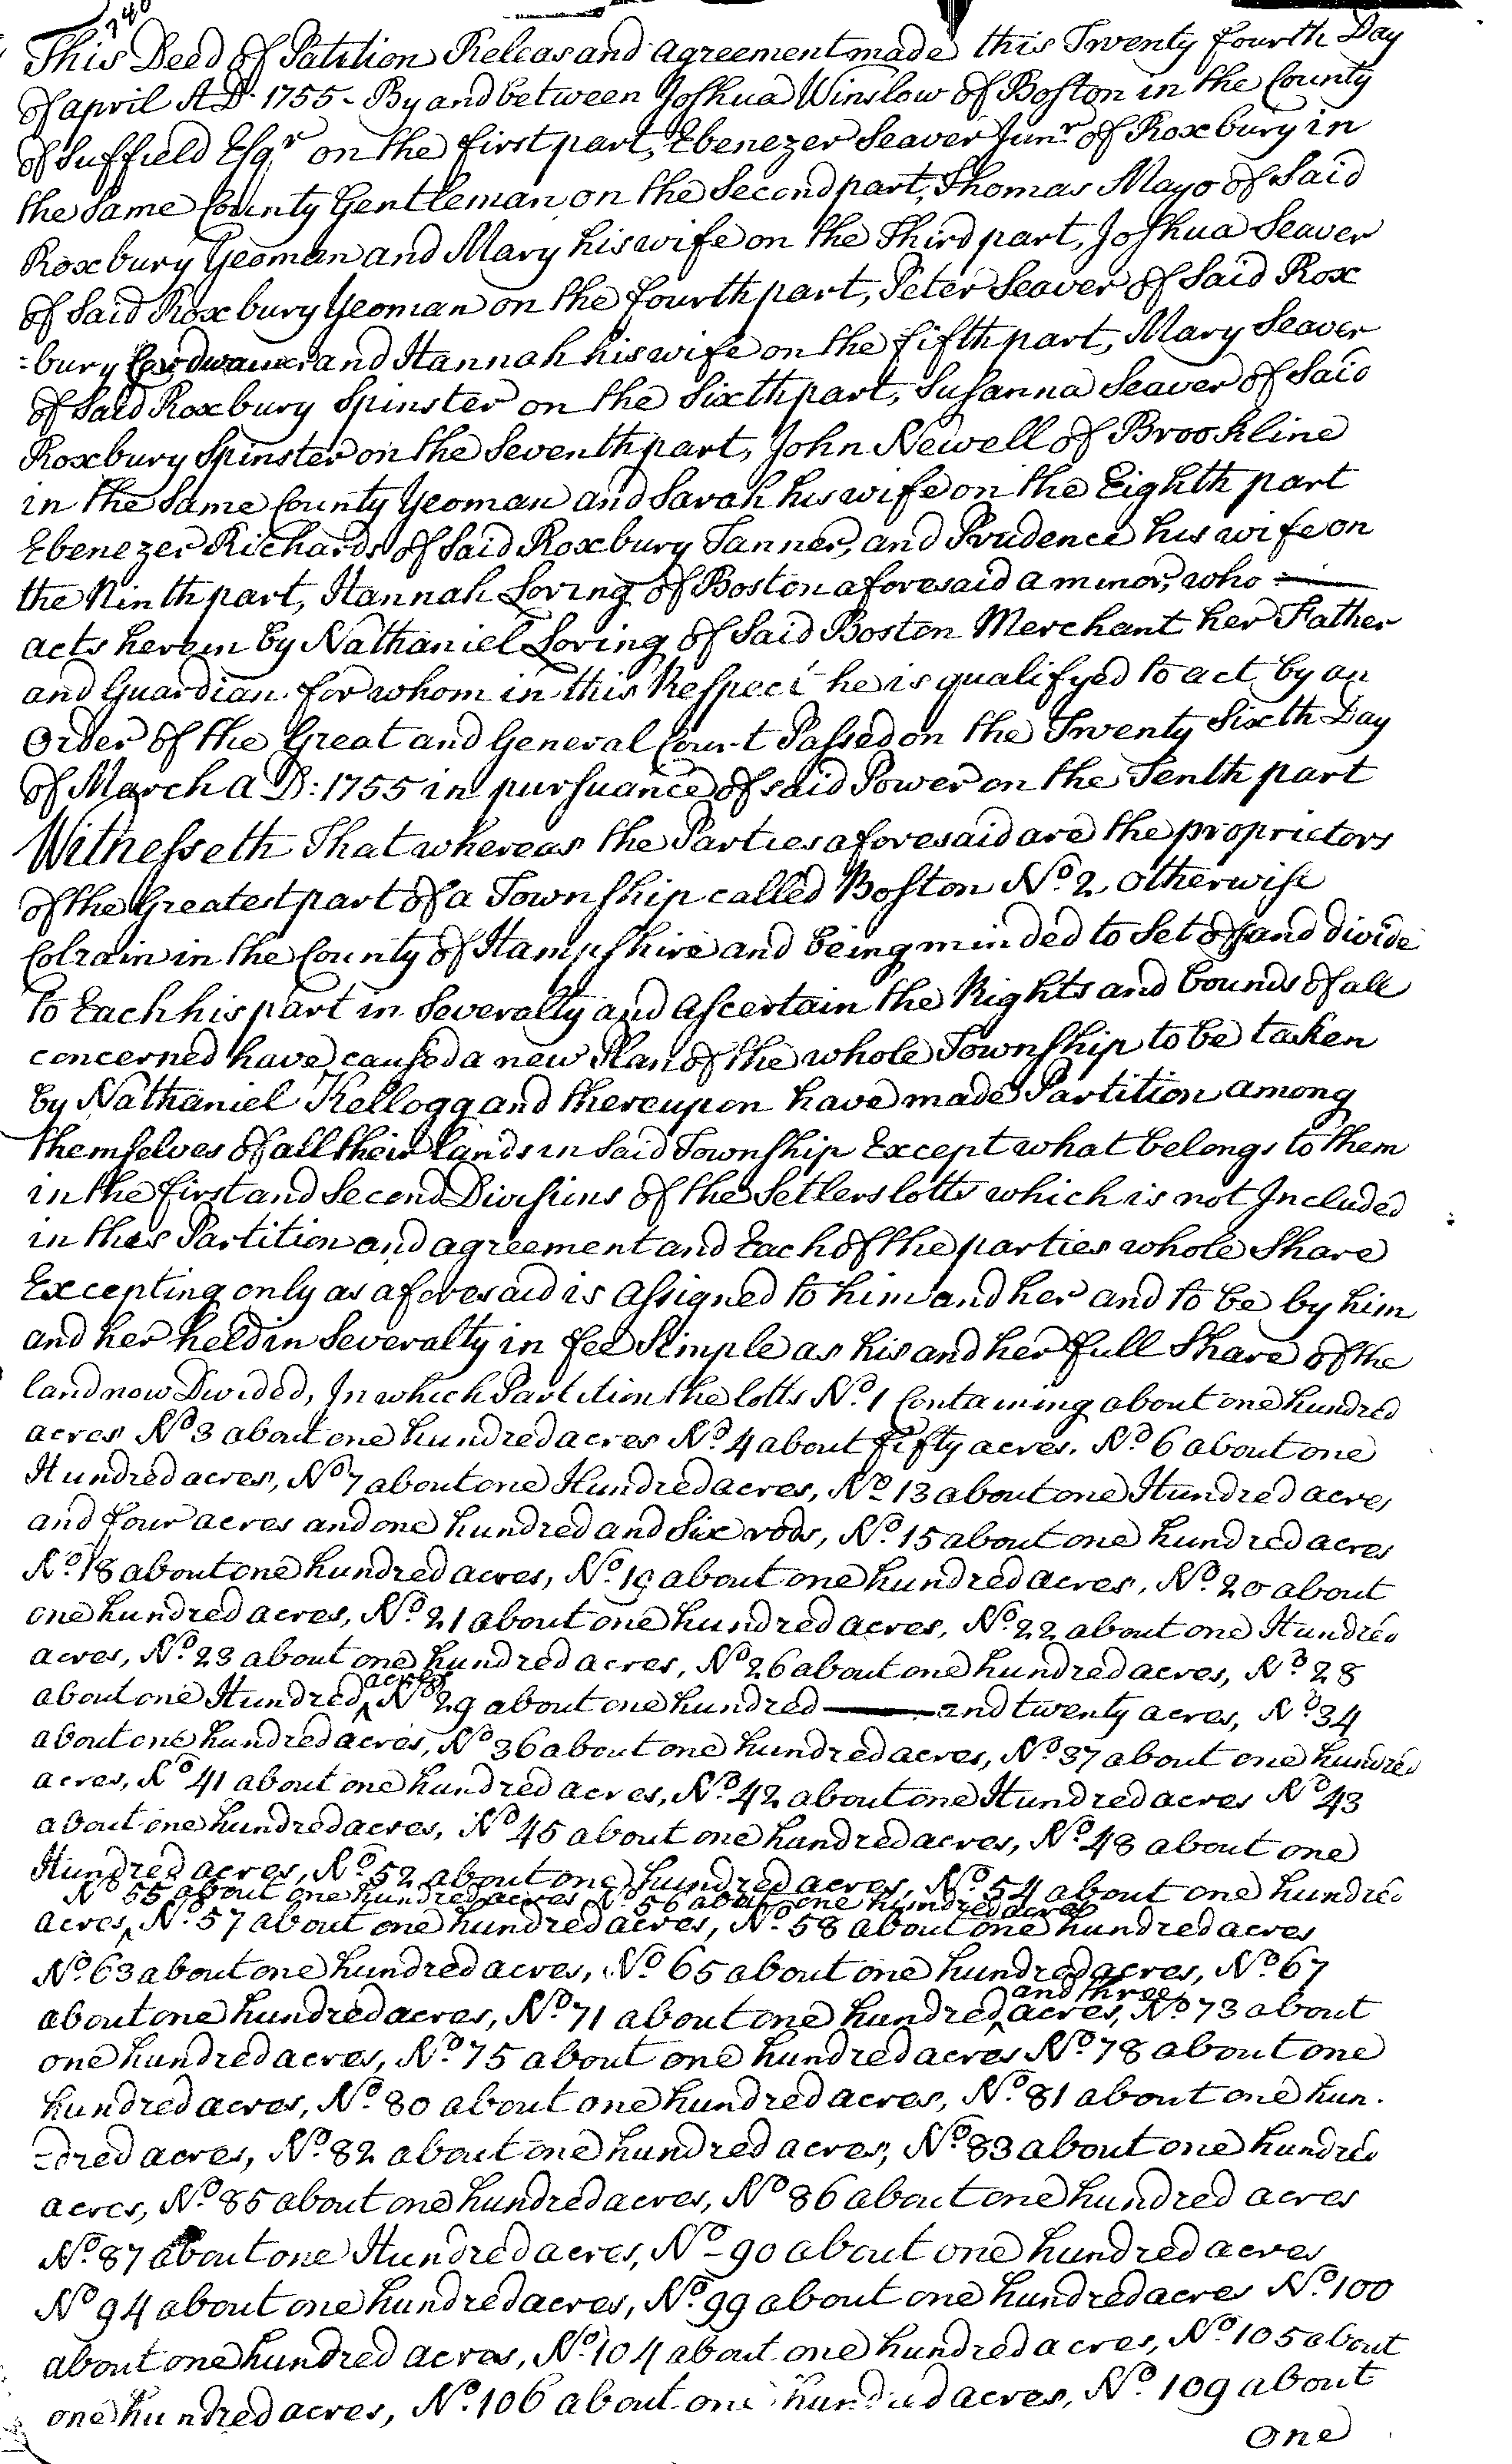 340
This Deed of Patition Releas and agreement made this Twenty fourth Day
of april A D: 1755 - By and between Joshua Winslow of Boston in the County
of Suffield Esqr on the first part, Ebenezer Seaver Junr of Roxbury in
the Same County Gentleman on the Second part, Thomas Mayo of Said
Roxbury Yeoman and Mary his wife on the Third part, Joshua Seaver
of Said Roxbury Yeoman on the fourth part, Peter Seaver of Said Rox
=bury Cordwainer and Hannah his wife on the fifth part, Mary Seaver
of Said Roxbury Spinster on the Sixth part, Susanna Seaver of Said
Roxbury Spinster on the Seventh part, John Newell of Brookline
in the Same County Yeoman and Sarah his wife on the Eighth part
Ebenezer Richards of Said Roxbury Tanner, and Prudence his wife on
the Ninth part, Hannah Loring of Boston aforesaid a minor, who
acts herein by Nathaniel Loring of Said Boston Merchant her Father
and Guardian for whom in this Respect he is qualifyed to act by an
Order of the Great and General Court Passed on the Twenty Sixth Day
of March A D: 1755 in pursuance of said Power on the Tenth part
Witnesseth That whereas the Parties aforesaid are the proprietors
of the Greatest part of a Township called Boston No. 2 otherwise
Colrain in the County of Hampshire and being minded to Set off and divide
to Each his part in Severalty and Ascertain the Rights and bounds of all
concerned have caused a new Plan of the whole Township to be taken
by Nathaniel Kellogg and thereupon have made Partition among
themselves of all their lands in Said Township Except what belongs to them
in the first and Second Divisions of the Setlers lotts which is not Included
in this Partition and agreement and Each of the parties whole Share
Excepting only as aforesaid is Assigned to him and her and to be by him
and her held in Severalty in fee Simple as his and her full Share of the
land now Divided, In which Partition the lotts No. 1 Containing about one hundred
acres No 3 about one hundred acres No. 4 about fifty acres. No. 6 about one
Hundred acres, No 7 about one Hundred acres, No. 13 about one Hundred acres
and four acres and one hundred and Six rods, No. 15 about one hundred acres
No. 18 about one hundred acres, No. 19 about one hundred acres, No. 20 about
one hundred acres, No. 21 about one hundred acres, No. 22 about one Hundred
acres, No. 23 about one hundred acres, No 26 about one hundred acres, No. 28
about one Hundred acres No 29 about one hundred and twenty acres, No. 34
about one hundred acres, No 36 about one hundred acres, No. 37 about one hundred
acres, No 41 about one hundred acres, No. 42 about one Hundred acres No 43
about one hundred acres, No 45 about one hundred acres, No. 48 about one
Hundred acres, No. 52 about one hundred acres, No. 54 about one hundred
No 55 about one hundred acres No. 56 about one hundred acres
acres, No. 57 about one hundred acres, No. 58 about one hundred acres
No. 63 about one hundred acres, No. 65 about one hundred acres, No. 67
about one hundred acres, No. 71 about one hundred and three acres, No. 73 about
one hundred acres, No. 75 about one hundred acres No. 78 about one
hundred acres, No. 80 about one hundred acres, No. 81 about one hun.
=dred acres, No. 82 about one hundred acres, No. 83 about one hundred
acres, No. 85 about one hundred acres, No 86 about one hundred acres
No. 87 about one Hundred acres, No - 90 about one hundred acres
No 94 about one hundred acres, No. 99 about one hundred acres No. 100
about one hundred acres, No. 104 about one hundred acres, No. 105 about
one hundred acres, No. 106 about one hundred acres, No. 109 about
one